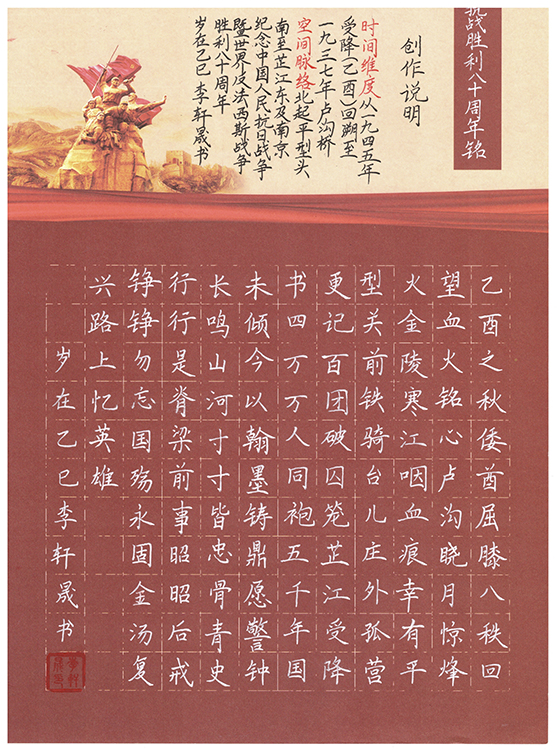 抗战胜利八十周年铭
创作说明
时间维度从一九四五年
受降(乙酉)回溯至
一九三七年卢沟桥
空间脉络北起平型关
南至芷江东及南京
纪念中国人民抗日战争
暨世界反法西斯战争
胜利八十周年
岁在乙巳 李轩晟书
乙酉之秋倭酋屈膝八秩回
望血火铭心卢沟晓月惊烽
火金陵寒江咽血痕幸有平
型关前铁骑台儿庄外孤营
更记百团破囚笼芷江受降
书四万万人同袍五千年国
未倾今以翰墨铸鼎愿警钟
长鸣山河寸寸皆忠骨青史
行行是脊梁前事昭昭后戒
铮铮勿忘国殇永固金汤复
兴路上忆英雄
岁在乙巳李轩晟书